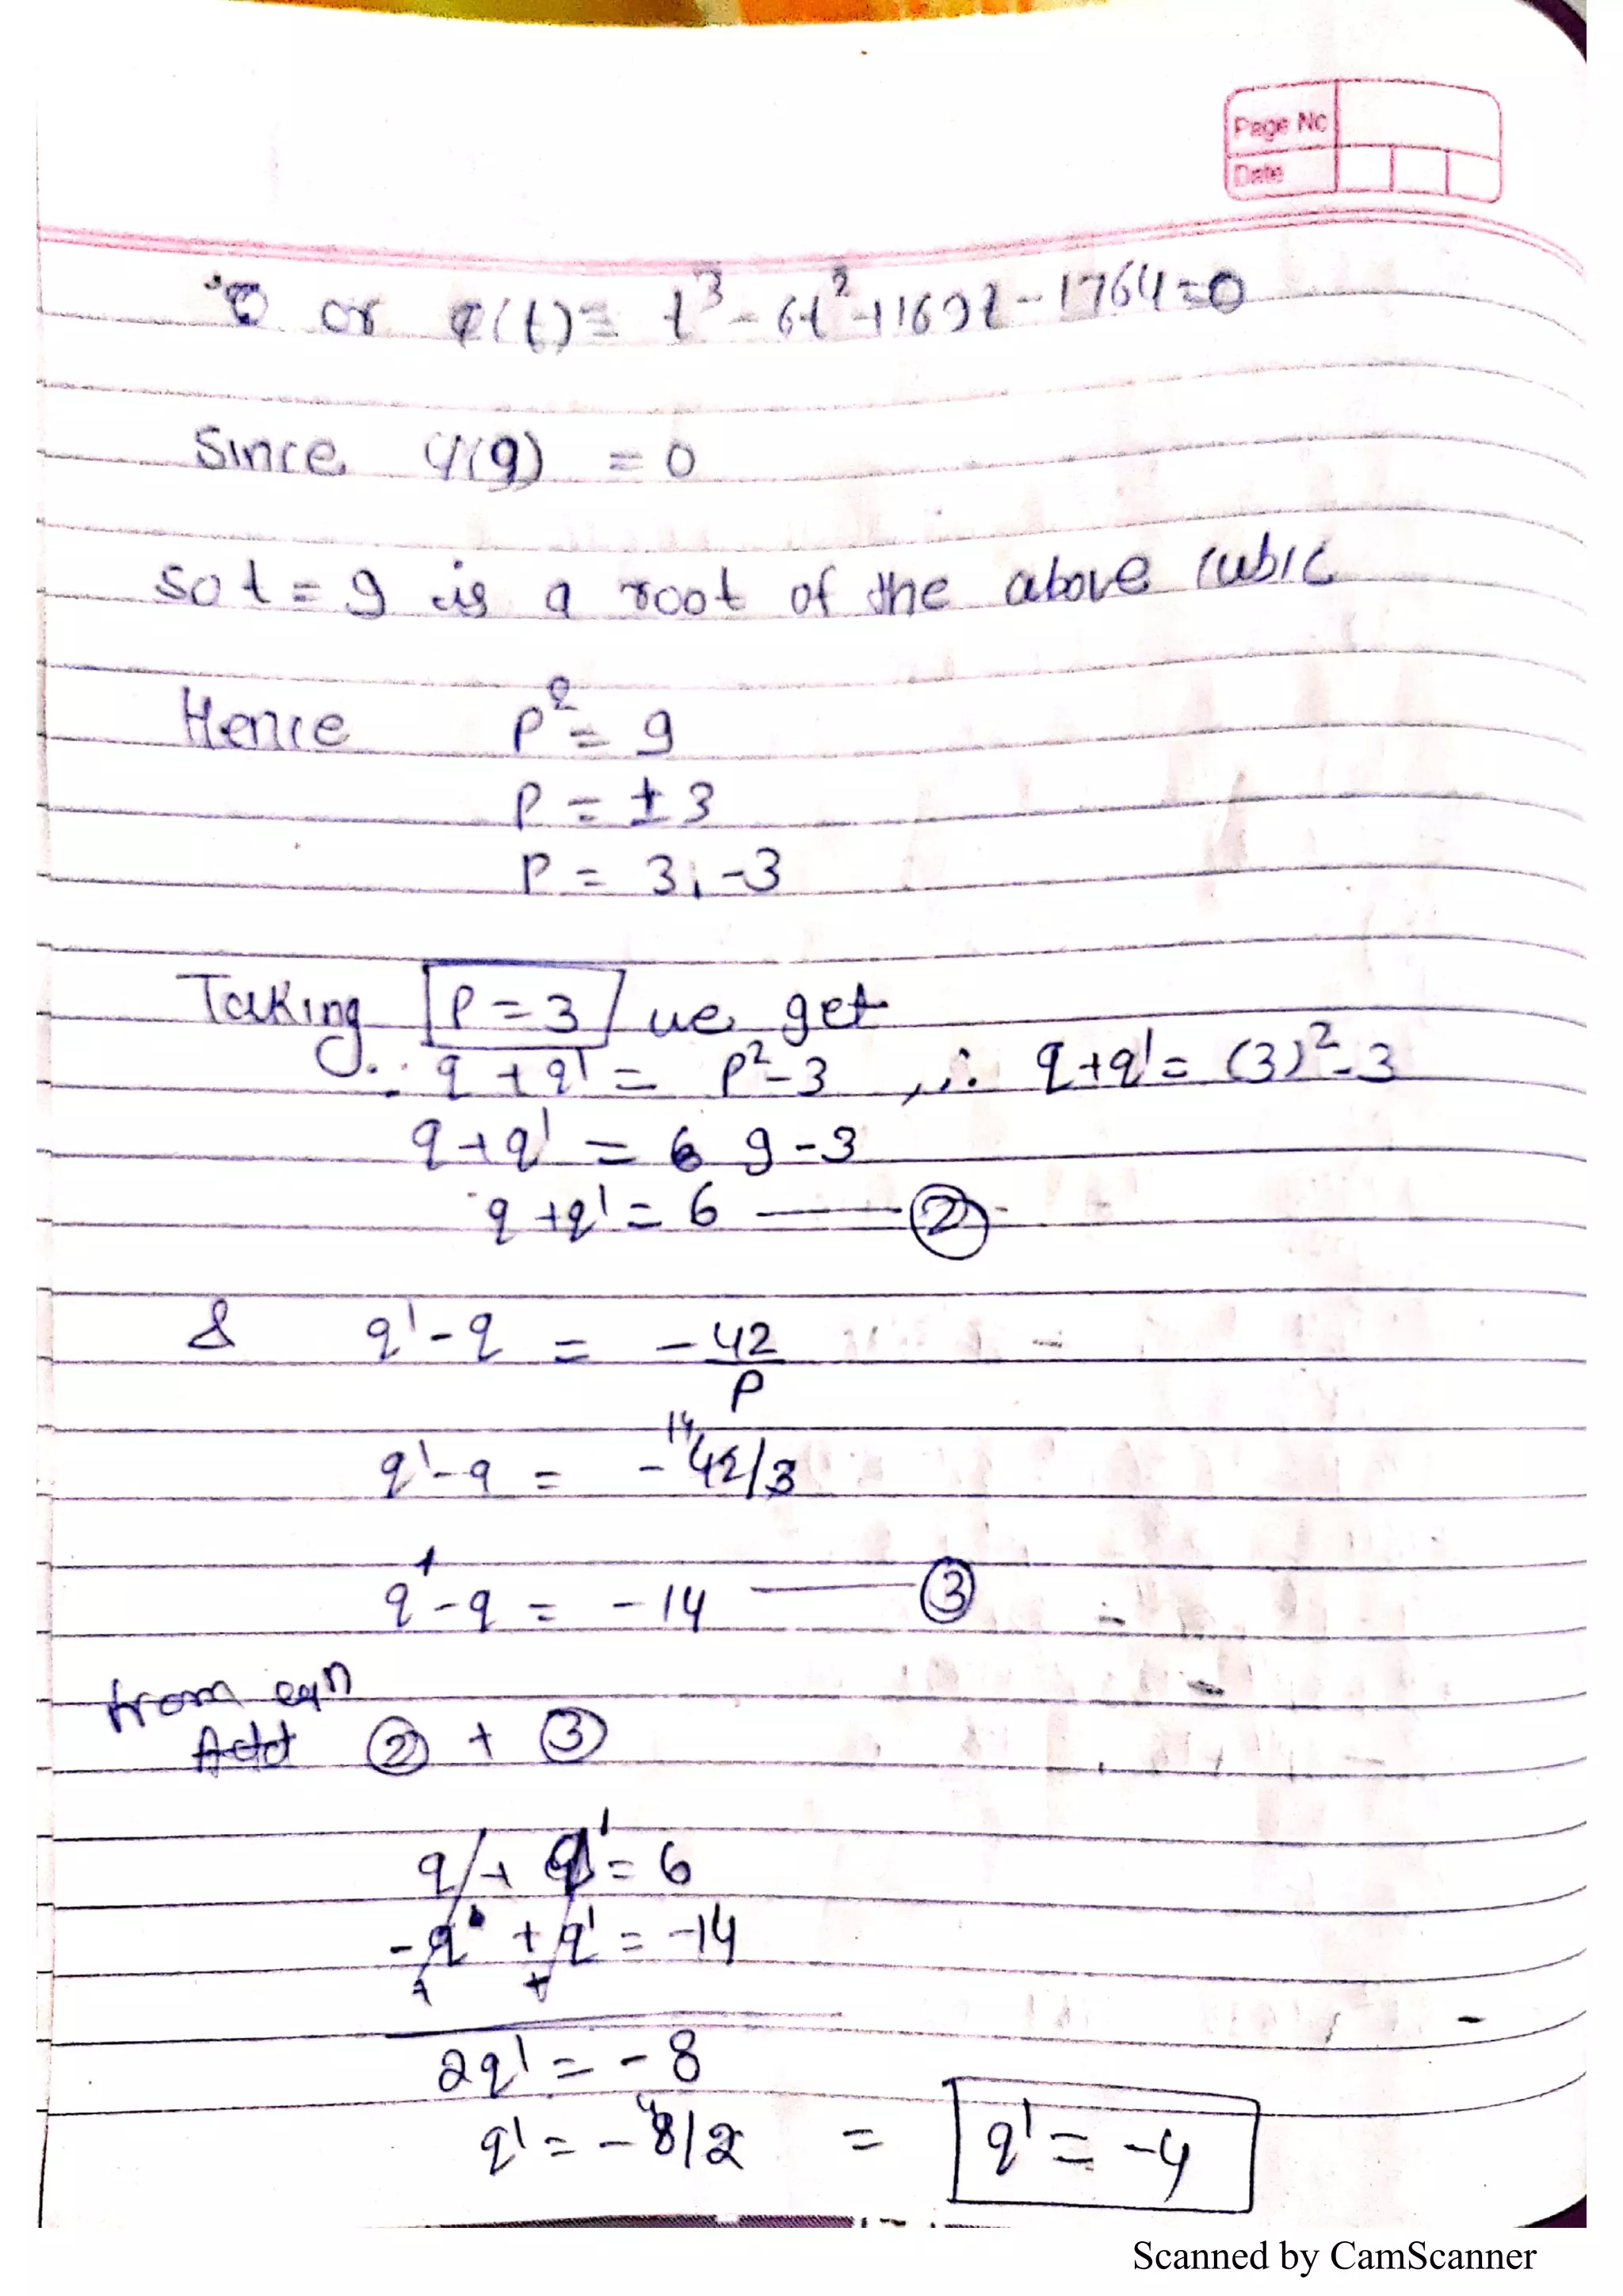 Page No
Date
or φ(t) = t³ - 6t² + 169t - 1764 = 0
Since φ(9) = 0
so t = 9 is a root of the above cubic
Hence p² = 9
p = ± 3
p = 3, -3
Taking p = 3 we get
∴ q + q' = p² - 3 , ∴ q + q' = (3)² - 3
q + q' = 6 9 - 3
q + q' = 6 —— ②
& q' - q = - 42
p
14
q' - q = - 42/3
q' - q = - 14 —— ③
from eqn
Add ② + ③
q + q' = 6
- q + q' = -14
+ +
2q' = - 8
q' = - 8/2 = q' = -4
4
Scanned by CamScanner